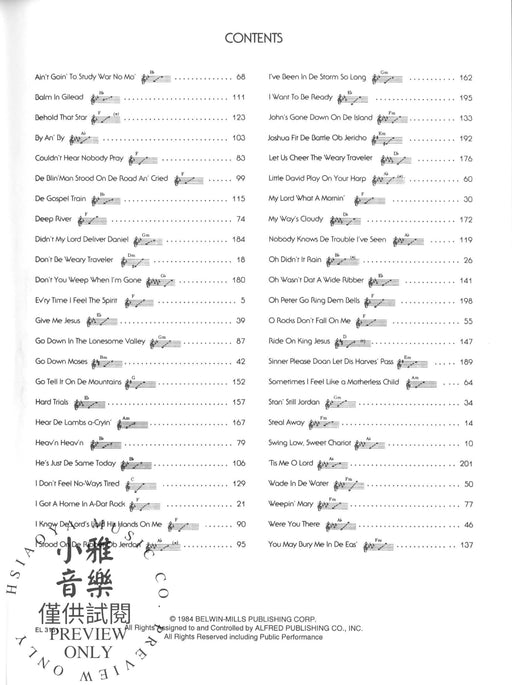 CONTENTS
Ain't Goin' To Study War No Mo' Bb 68
Balm In Gilead Bb 111
Behold That Star F (a) 123
By An' By Ab 103
Couldn't Hear Nobody Pray F 83
De Blin'Man Stood On De Road An' Cried F 99
De Gospel Train Bb 115
Deep River F 74
Didn't My Lord Deliver Daniel Gm 184
Don't Be Weary Traveler Dm 18
Don't You Weep When I'm Gone 180
Ev'ry Time I Feel The Spirit F 5
Give Me Jesus Eb 39
Go Down In The Lonesome Valley Gm 87
Go Down Moses Bm 42
Go Tell It On De Mountains G 152
Hard Trials Eb 157
Hear De Lambs a-Cryin' Am 167
Heav'n Heav'n Bb 79
He's Just De Same Today Bb 106
I Don't Feel No-Ways Tired C 129
I Got A Home In A-Dat Rock F 21
I Know De Lord's Laid His Hands On Me F 90
I Stood On De Ribber Ob Jerdon Ab (a) 95
I've Been In De Storm So Long Gm 162
I Want To Be Ready Eb 195
John's Gone Down On De Island Fm 133
Joshua Fit De Battle Ob Jericho Em 192
Let Us Cheer The Weary Traveler Db 176
Little David Play On Your Harp Ab (a) 60
My Lord What A Mornin' F 30
My Way's Cloudy Db 172
Nobody Knows De Trouble I've Seen Ab 119
Oh Didn't It Rain Bb (a) 26
Oh Wasn't Dat A Wide Ribber Eb 141
Oh Peter Go Ring Dem Bells F 198
O Rocks Don't Fall On Me F 55
Ride On King Jesus D 147
Sinner Please Doan Let Dis Harves' Pass Em 189
Sometimes I Feel Like a Motherless Child Am 64
Stan' Still Jordan Gm 34
Steal Away Fm 14
Swing Low, Sweet Chariot Ab 10
'Tis Me O Lord Ab 201
Wade In De Water Fm 50
Weepin' Mary Fm 77
Were You There Ab 46
You May Bury Me In De Eas' Fm 137
HSIAOYA MUSIC CO.
小雅
音樂
僅供試閱
PREVIEW
ONLY
PREVIEW ONLY
EL 3151
© 1984 BELWIN-MILLS PUBLISHING CORP.
All Rights Assigned to and Controlled by ALFRED PUBLISHING CO., INC.
All Rights Reserved including Public Performance